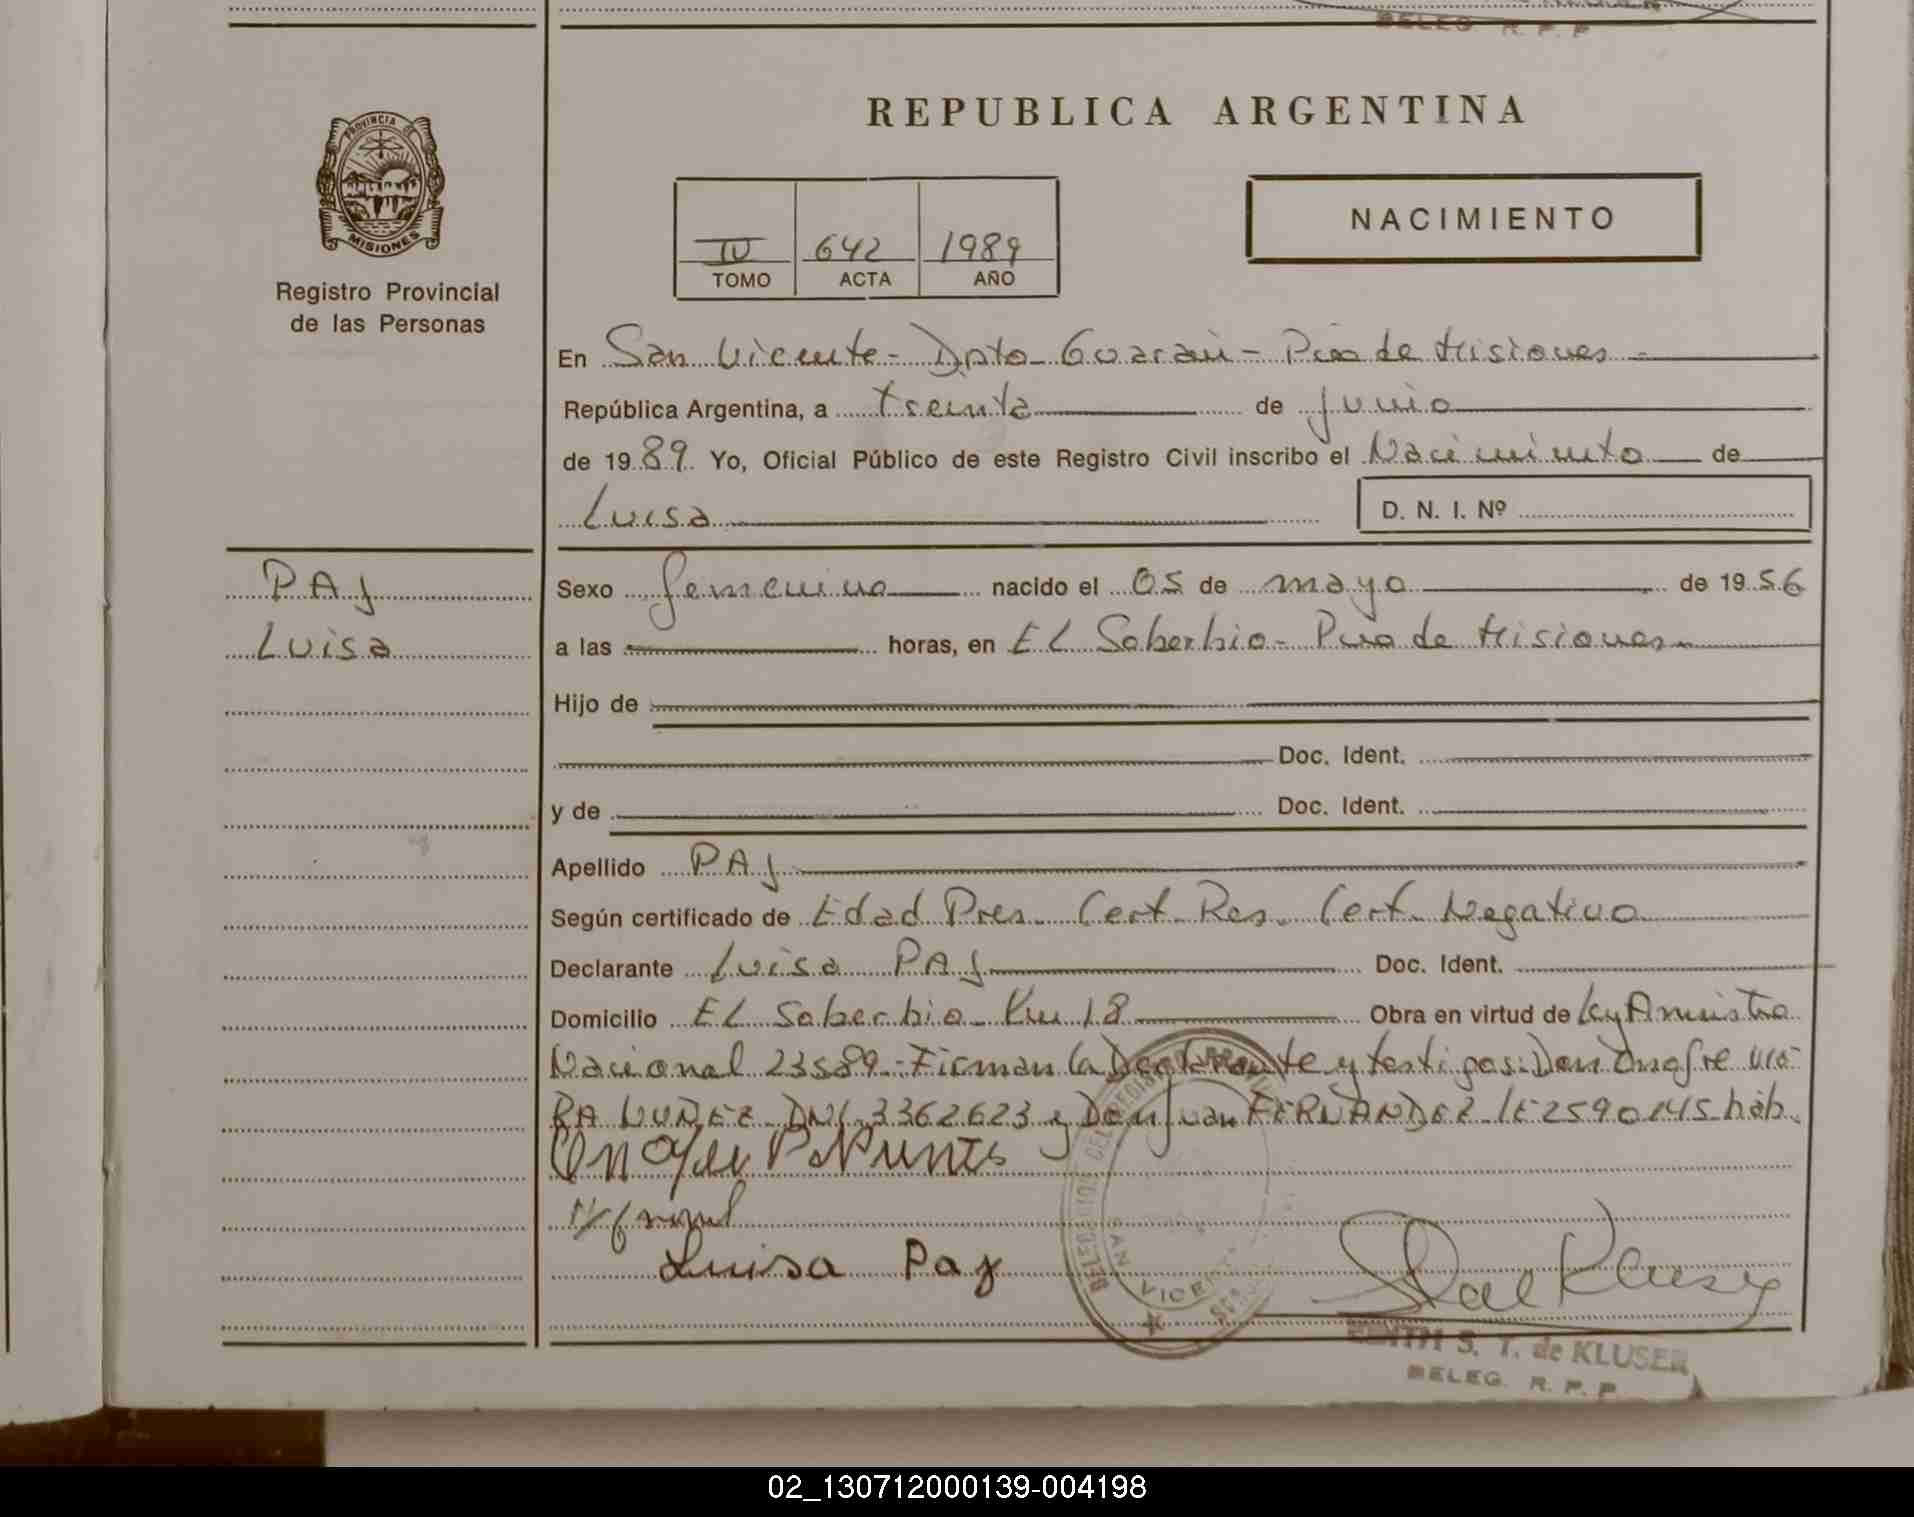 BELEG. R. P. P.
REPUBLICA ARGENTINA
PROVINCIA DE
MISIONES
Registro Provincial
de las Personas
NACIMIENTO
IV 642 1989
TOMO ACTA AÑO
En San Vicente - Dpto - Guarani - Pcia de Misiones
República Argentina, a treinta de junio
de 1989. Yo, Oficial Público de este Registro Civil inscribo el Nacimiento de
Luisa D. N. I. Nº
PAJ
Luisa
Sexo femenino nacido el 05 de mayo de 1956
a las horas, en EL Soberbio - Pcia de Misiones
Hijo de
Doc. Ident.
y de Doc. Ident.
Apellido PAJ
Según certificado de Edad Pres. Cert. Res. Cert. Negativo
Declarante Luisa PAJ Doc. Ident.
Domicilio EL Soberbio - Km 18 Obra en virtud de Ley Amnistia
Nacional 23589 - Firman la Declarante y testigos: Don Onofre
NUÑEZ DNI 3362623 y Don Juan FERNANDEZ LE 2590145 háb.
Luisa Paj
SAN VICENTE
EDITH S. T. de KLUSER
BELEG. R. P. P.
02_130712000139-004198